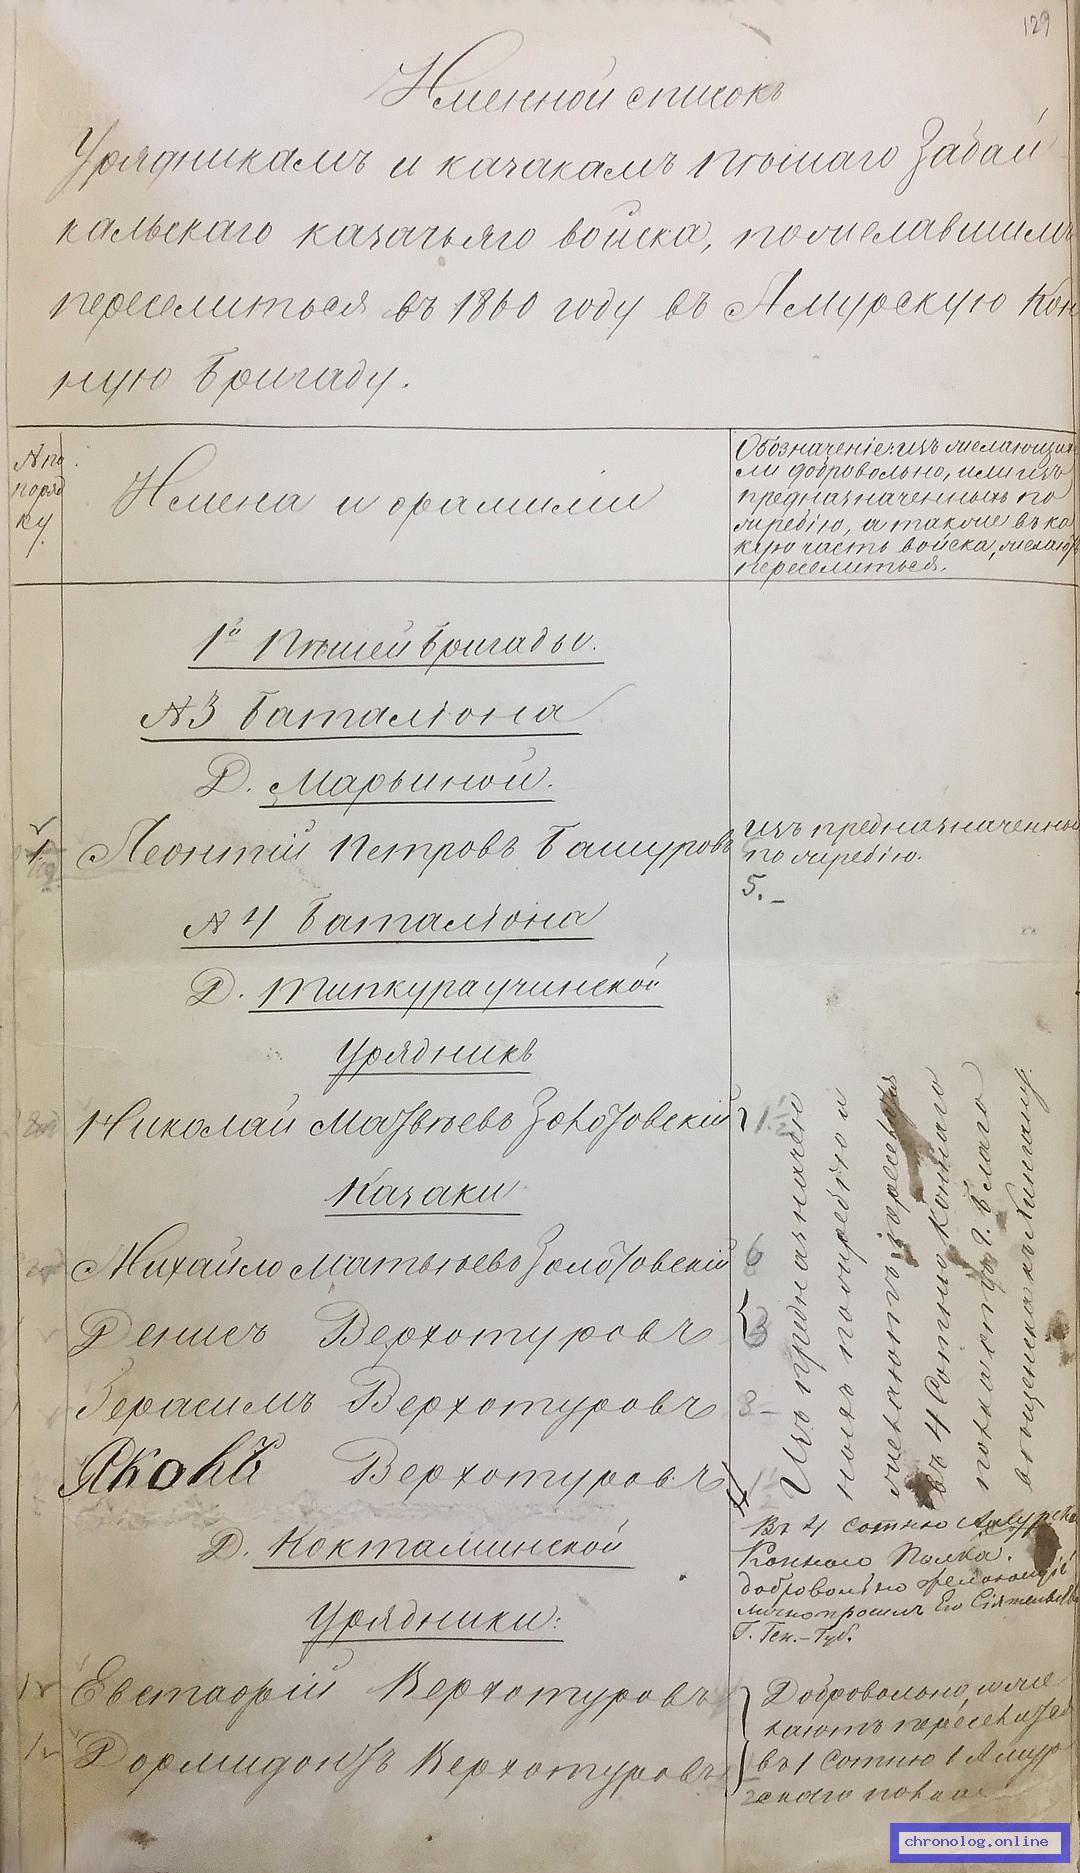 129
Именной списокъ
Урядникамъ и казакамъ пѣшаго Забай
кальскаго казачьяго войска, пожелавшимъ
переселиться въ 1860 году въ Амурскую Кон
ную бригаду.
№ по
поряд
ку.
Имена и фамиліи
Обозначеніе: изъ желающихъ
ли добровольно, или изъ
предназначенныхъ по
жребію, а также въ ка
кую часть войска, желаютъ
переселиться.
1й Пѣшей бригады.
№ 3 баталіона
Д. Марьиной.
1
Леонтій Петровъ Башуровъ
изъ предназначенных
по жребію.
5.-
№ 4 баталіона
Д. Шипкураучинской
Урядникъ
Николай Матвѣевъ Золотовскій
1 1/2
Казаки
Михайло Матвѣевъ Золотовскій
6
Денисъ Верхотуровъ
3
Герасимъ Верхотуровъ
8-
Яковъ Верхотуровъ
1 1/2
Изъ предназначен
ныхъ по жребію и
желаютъ переселиться
въ 4 Сотню Коннаго
полка отъ г. Благо
вещенска къ Хингану.
Д. Коктолшинской
Въ 4 сотню Амурскаго
Коннаго Полка.
добровольно желающіе
лично просилъ Его Сіятельство
Г. Ген.-Губ.
Урядники:
Евстафій Верхотуровъ
Дормидонтъ Верхотуровъ
Добровольно, жела
ютъ переселиться
въ 1 Сотню 1 Амур
скаго полка
chronolog.online